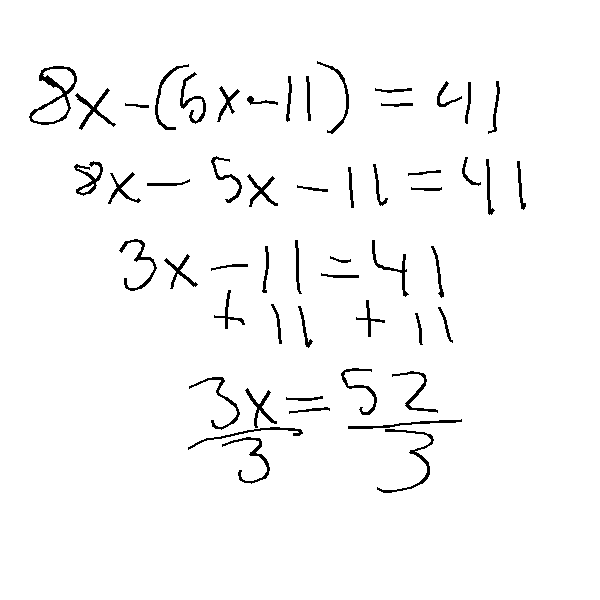 8x-(5x-11) = 41
8x - 5x - 11 = 41
3x - 11 = 41
+ 11 + 11
3x = 52
3 3